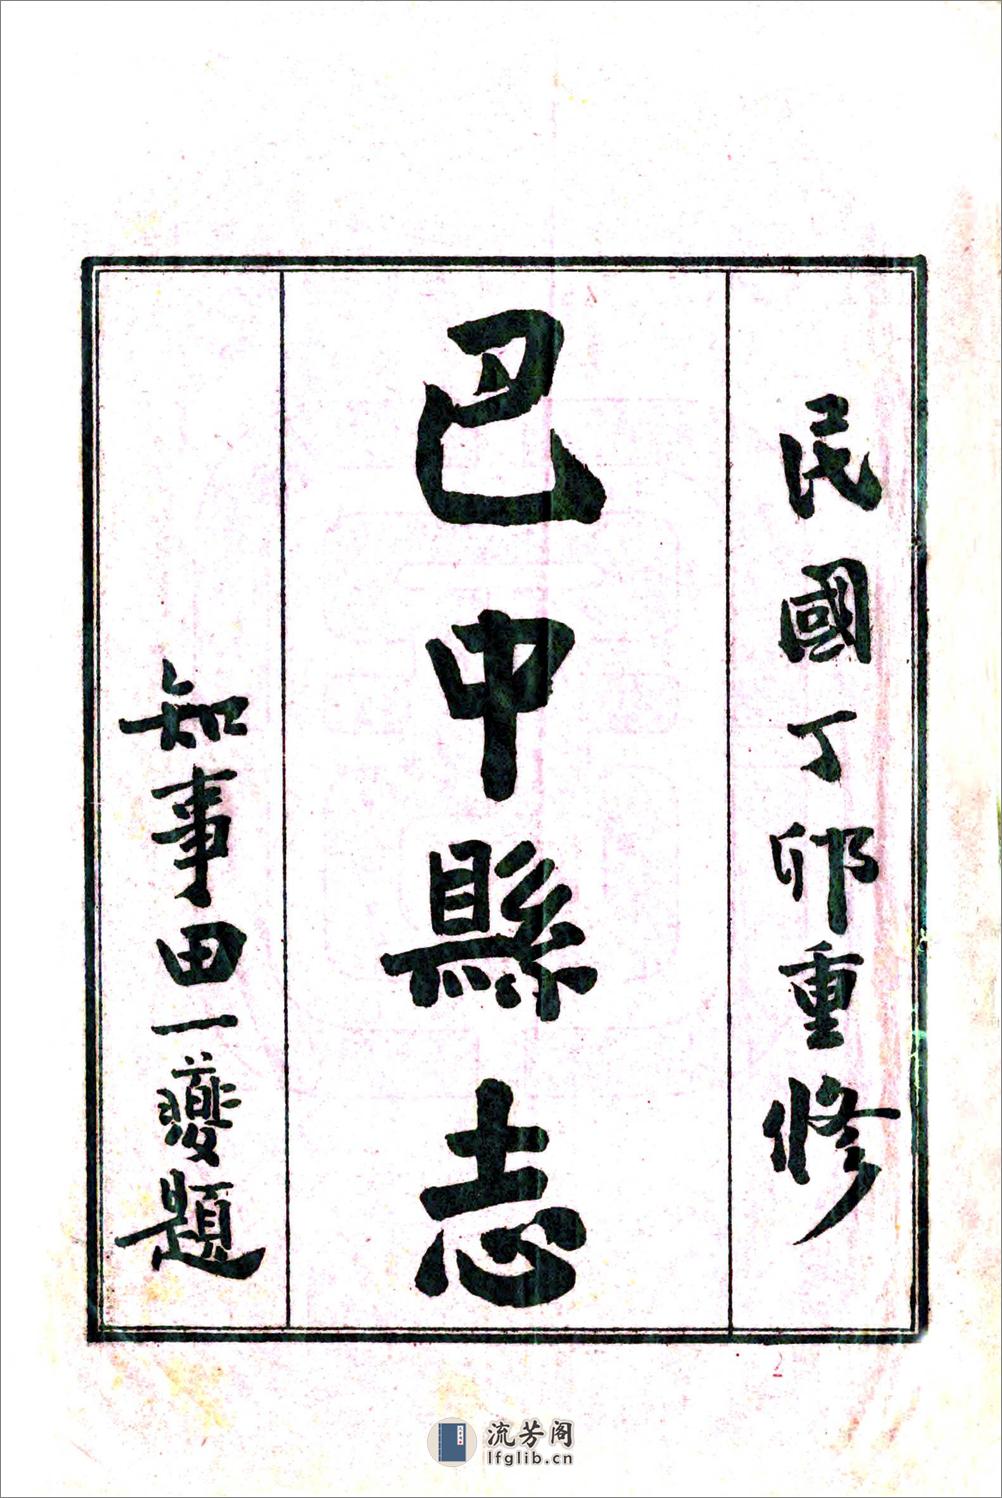 民國丁卯重修
巴中縣志
知事田一夔題
流芳阁
lfglib.cn